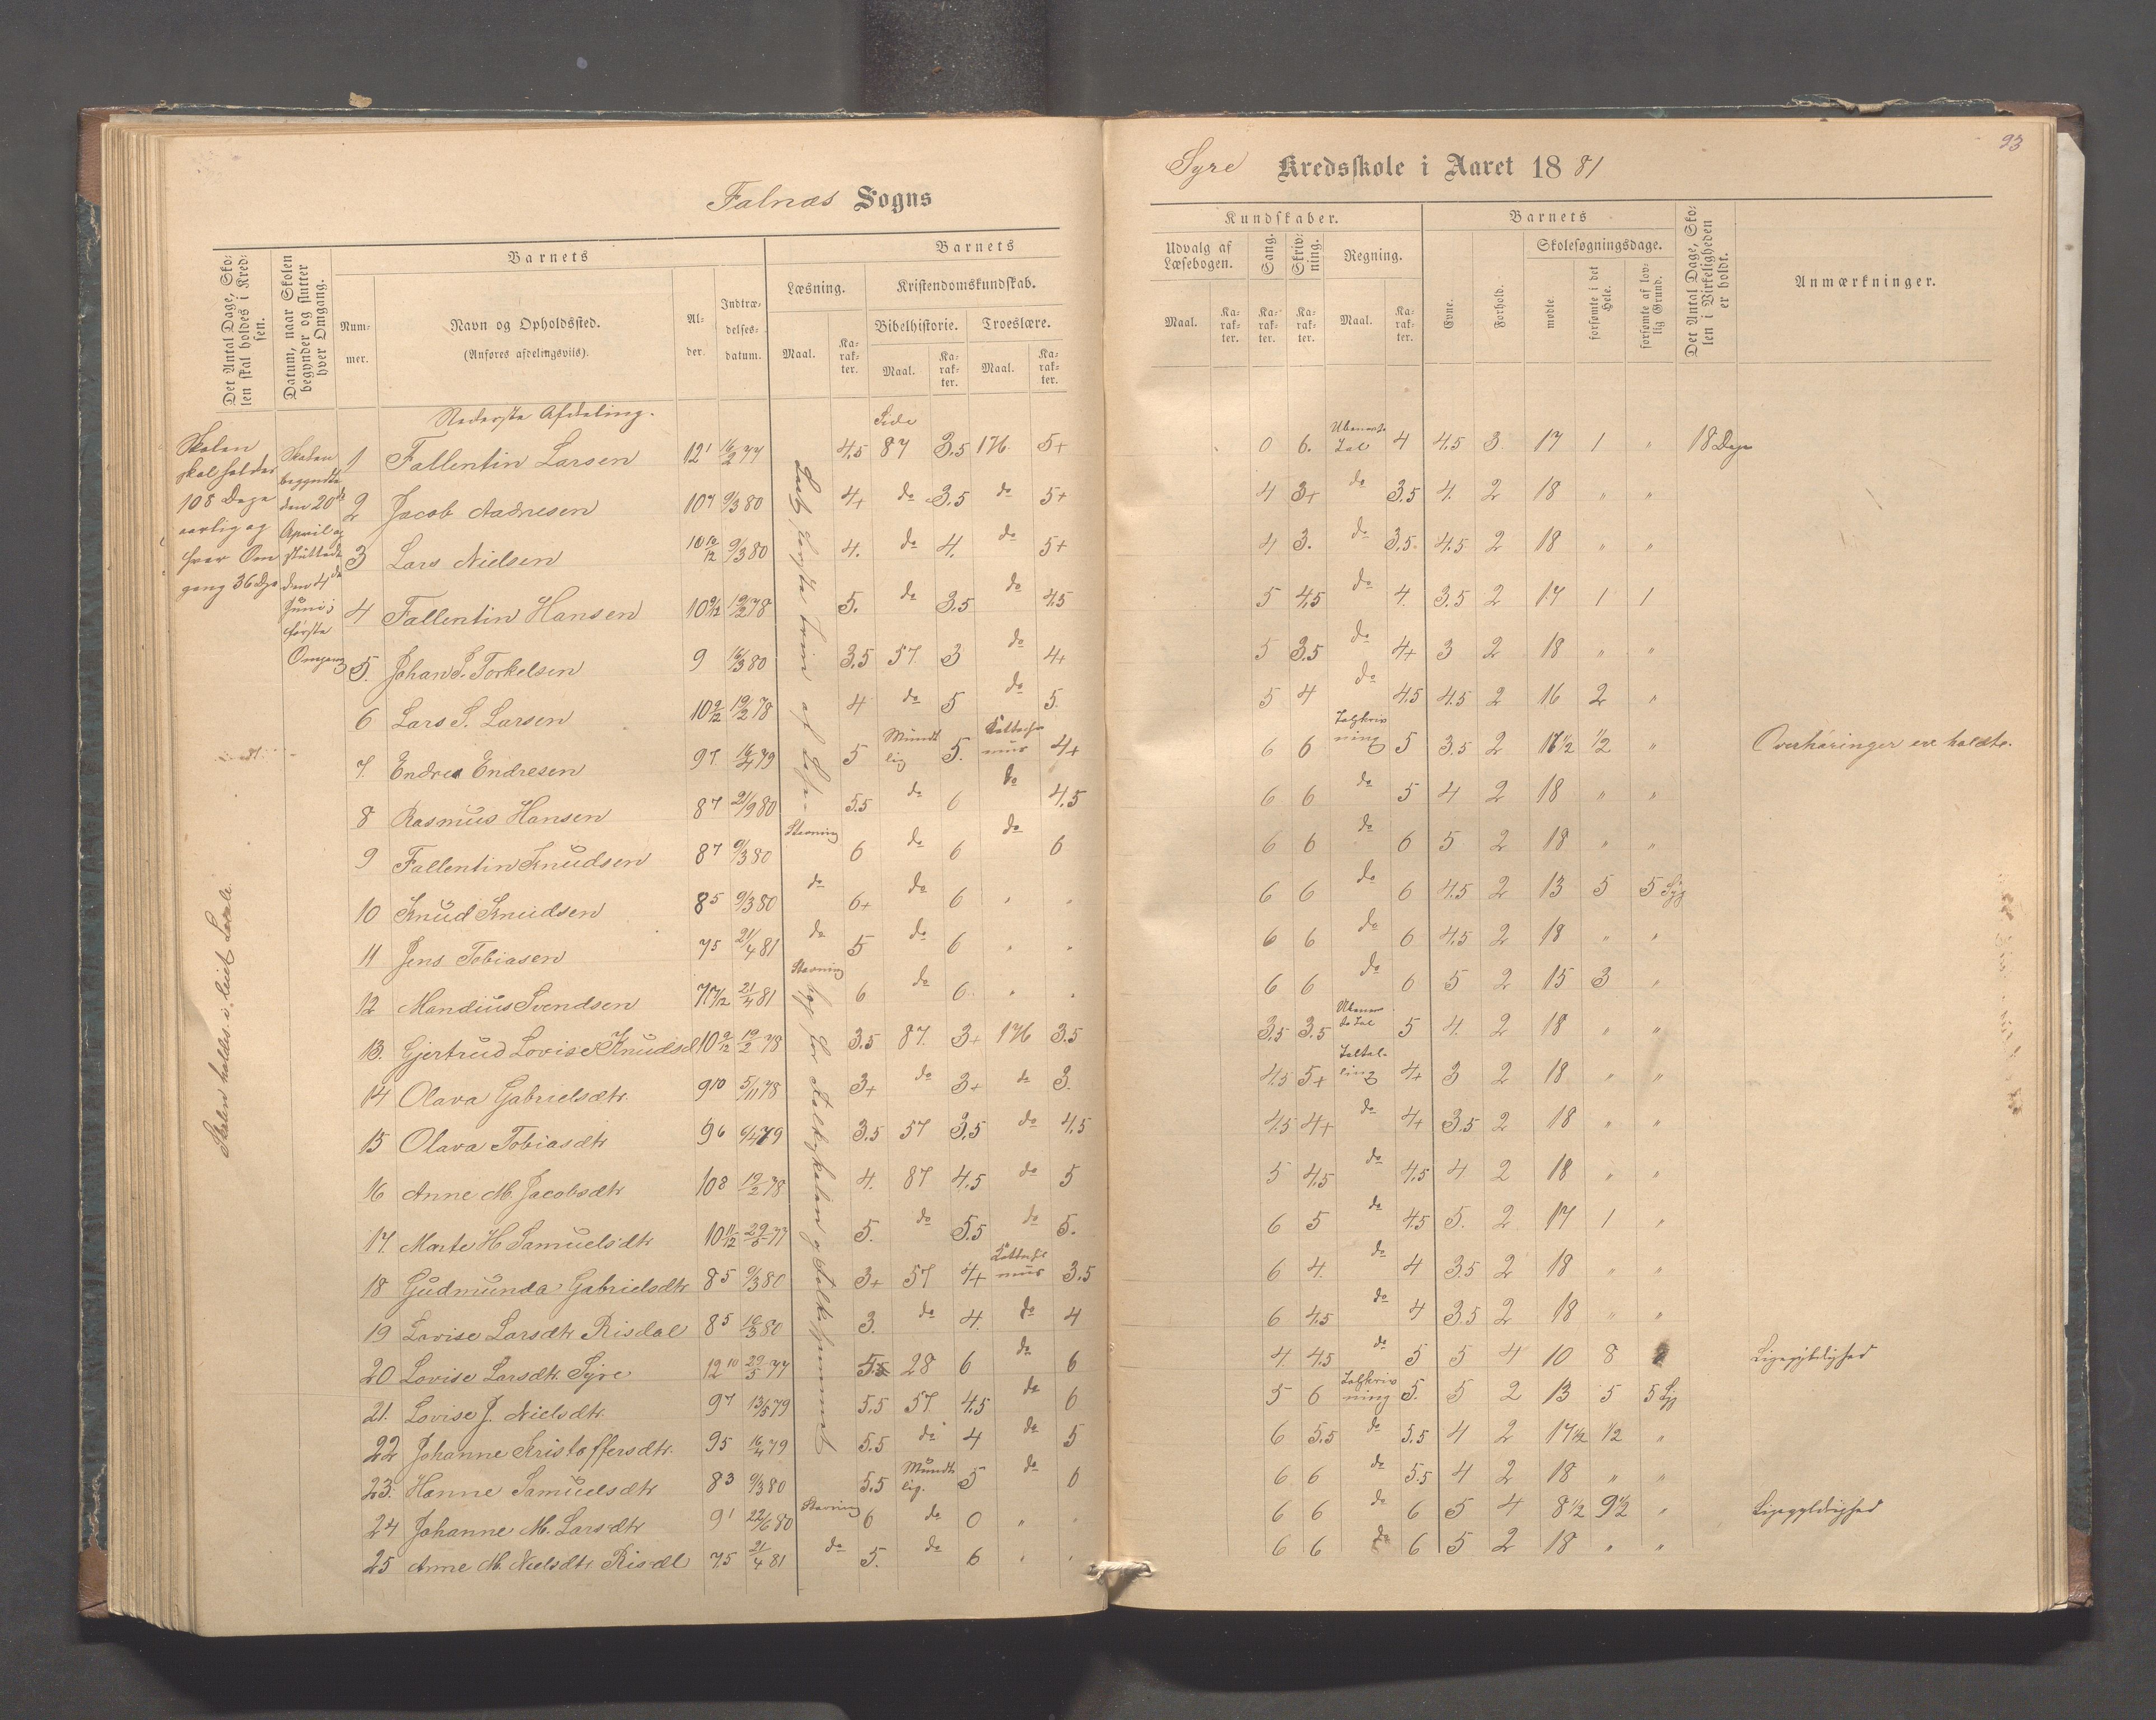 93
Falnæs Sogns
Syre Kredsskole i Aaret 1881
Det Antal Dage, Skolen skal holdes i Kredsen.
Datum, naar Skolen begynder og slutter hver Omgang.
Barnets
Nummer.
Navn og Opholdssted.
(Anføres afdelingsvis).
Alder.
Indtrædelsesdatum.
Barnets
Læsning.
Maal.
Karakter.
Kristendomskundskab.
Bibelhistorie.
Maal.
Karakter.
Troeslære.
Maal.
Karakter.
Kundskaber.
Udvalg af Læsebogen.
Maal.
Karakter.
Sang.
Karakter.
Skrivning.
Karakter.
Regning.
Maal.
Karakter.
Barnets
Evne.
Forhold.
Skolesøgningsdage.
mødte
forsømte i det Hele.
forsømte af lovlig Grund.
Det Antal Dage, Skolen i Virkeligheden er holdt.
Anmærkninger.
Skolen
skal holdes
108 Dage
aarlig og
hver Om
gang 36 Dge
Skolen
begyndte
den 20de
April og
sluttede
den 4de
Juni;
første
Omgang
Skolen holdes i leiet Locale.
Nederste Afdeling.
Side
1 Fallentin Larsen 12 1 16/2 77 4.5 87 3.5 176 5+ 0 6. Ubenævnte Tal 4 4.5 3. 17 1 " 18 Dage
2 Jacob Aadnesen 10 7 9/3 80 4+ do 3.5 do 5+ 4 3+ do 3.5 4. 2 18 " "
3 Lars Nielsen 10 10/12 9/3 80 4. do 4. do 5+ 4 3. do 3.5. 4.5 2 18 " "
4 Fallentin Hansen 10 9/12 19/2 78 5. do 3.5 do 4.5 5 4.5 do 4. 3.5 2 17 1 1
5. Johan T. Torkelsen 9 16/3 80 3.5 57. 3 do 4+ 5 3.5 do 4+ 3 2 18 " "
6 Lars S. Larsen 10 9/12 19/2 78 4 do 5 do 5. 5 4 do 4.5 4.5 2 16 2 "
7. Endre Endresen 9 7 16/4 79 5 Mundtlig 5. 4+ 6 6 Talskrivning 5 3.5 2 17 1/2 1/2 " Overhøringer ere holdte.
8 Rasmus Hansen 8 7 21/9 80 5.5 do 6 do 4.5 6 6 do 5 4 2 18 " "
9 Fallentin Knudsen 8 7 9/3 80 Stavning 6 do 6 do 6 6 6 do 6 5 2 18 " "
10 Knud Knudsen 8 5 9/3 80 do 6+ do 6 " " 6 6 do 6 4.5 2 13 5 5 Syg
11 Jens Tobiasen 7 5 21/4 81 do 5 do 6 " " 6 6 do 6 4.5 2 18 " "
12 Mandius Svendsen 7 7/12 21/4 81 Stavning 6 do 6. " " 6 6 do 6 5 2 15 3 "
13. Gjertrud Lovise Knudsd 10 9/12 19/2 78 3.5 87. 3+ 176 3.5 3.5 3.5 Ubenævnte Tal 5 4. 2 18 " "
14 Olava Gabrielsdtr. 9 10 5/11 78 3+ do 3+ do 3. 4.5 5+ Taltælling 4+ 3 2 18 " "
15 Olava Tobiasdtr 9 6 6/4 79 3.5 57 3.5 do 4.5 4.5 4+ do 4+ 3.5 2 18 " "
16 Anne M. Jacobsdtr 10 8 19/2 78 4. 87 4.5 do 5 5 4.5 do 4.5 4 2 18 " "
17. Marte H Samuelsdtr 10 11/12 29/5 77 5. do 5.5 do 5. 6 5 do 4.5 5. 2 17 1 "
18 Gudmunda Gabrielsdtr 8 5 9/3 80 3+ 57 4+ 3.5 6 4. do 4 3.5 2 18 " "
19 Lovise Larsdtr Risdal 8 5 16/3 80 3. do 4. do 4 6 4.5 do 4 3.5 2 18 " "
20 Lovise Larsdtr. Syre 12 10 29/5 77 5.5 28 6 do 6 4. 4.5 do 5 5 4 10 8 Ligegyldighed
21. Lovise J. Nielsdtr. 9 7 13/5 79 5.5 57 4.5 do 6 5 6 Talskrivning 5. 5 2 13 5 5 Syg
22 Johanne Kristoffersdtr. 9 5 16/4 79 5.5 do 4 do 5 6 5.5 do 5.5 4 2 17 1/2 1/2 "
23. Hanne Samuelsdtr 8 3 9/3 80 5.5 Mundtlig. 5 do 6 6 6 do 5.5 4 2 18 " "
24 Johanne M. Larsdtr 9 1 22/6 80 Stavning 6 do 0 " " 6 6 do 6 5 4 8 1/2 9 1/2 " Ligegyldighed
25 Anne M. Nielsdtr Risdl 7 5 21/4 81 do 5. do 6 " " 6 6 do 6 5 2 18 " "